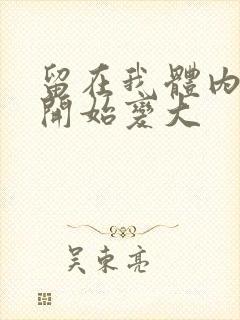 留在我體內
開始變大
吳東亮